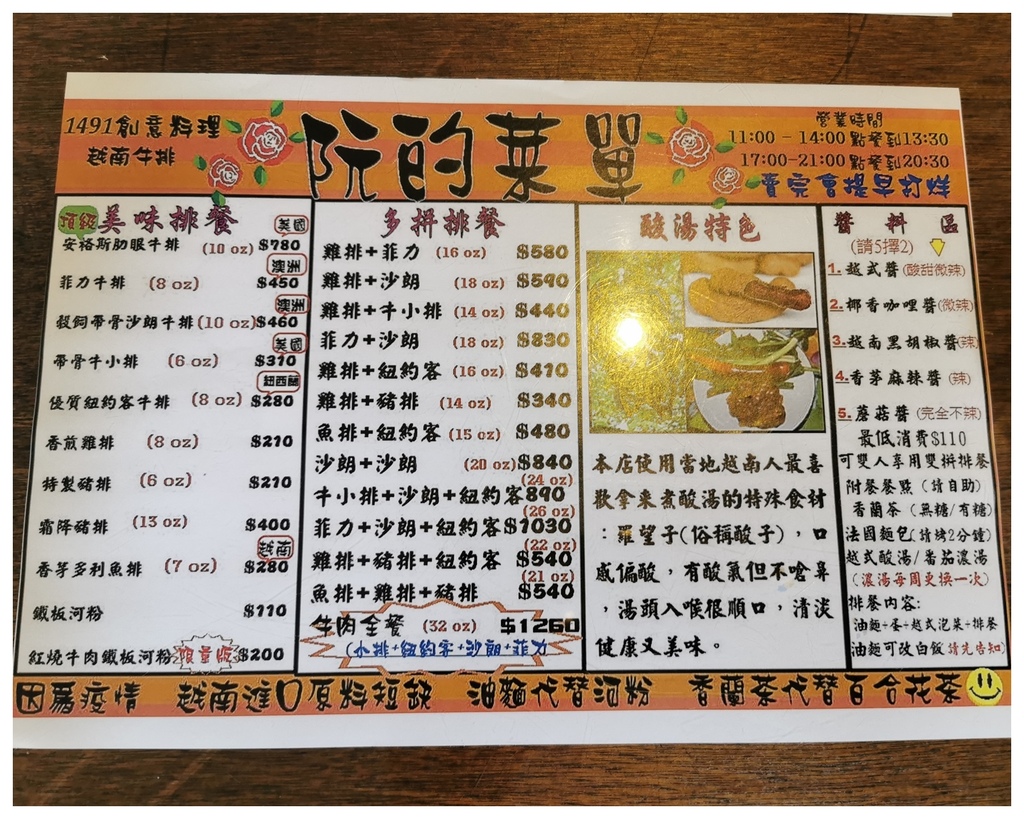 1491創意料理
越南牛排
阮的菜單
營業時間
11:00 - 14:00 點餐到13:30
17:00-21:00 點餐到20:30
賣完會提早打烊
頂級 美味排餐
美國
安格斯肋眼牛排 (10 oz) $780
澳洲
菲力牛排 (8 oz) $450
澳洲
穀飼帶骨沙朗牛排(10 oz)$460
美國
帶骨牛小排 (6 oz) $310
紐西蘭
優質紐約客牛排 (8 oz) $280
香煎雞排 (8 oz) $210
特製豬排 (6 oz) $210
霜降豬排 (13 oz) $400
越南
香芋多利魚排 (7 oz) $280
鐵板河粉 $110
紅燒牛肉鐵板河粉 限量版 $200
多拼排餐
雞排+菲力 (16 oz) $580
雞排+沙朗 (18 oz) $590
雞排+牛小排 (14 oz) $440
菲力+沙朗 (18 oz) $830
雞排+紐約客 (16 oz) $410
雞排+豬排 (14 oz) $340
魚排+紐約客 (15 oz) $480
沙朗+沙朗 (20 oz) $840
(24 oz)
牛小排+沙朗+紐約客890
(26 oz)
菲力+沙朗+紐約客$1030
(22 oz)
雞排+豬排+紐約客 $540
(21 oz)
魚排+雞排+豬排 $540
牛肉全餐 (32 oz) $1260
(小排+紐約客+沙朗+菲力
酸湯特色
本店使用當地越南人最喜
歡拿來煮酸湯的特殊食材
：羅望子(俗稱酸子)，口
感偏酸，有酸氣但不嗆鼻
，湯頭入喉很順口，清淡
健康又美味。
醬料區
(請5擇2)
1. 越式醬(酸甜微辣)
2. 椰香咖哩醬(微辣)
3. 越南黑胡椒醬(辣)
4. 香茅麻辣醬 (辣)
5. 蘑菇醬 (完全不辣)
最低消費$110
可雙人享用雙拼排餐
附餐餐點 (請自助)
香蘭茶 (無糖/有糖)
法國麵包(請烤2分鐘)
越式酸湯/番茄濃湯
(濃湯每周更換一次)
排餐內容:
油麵+蛋+越式泡菜+排餐
油麵可改白飯請先告知)
因為疫情 越南進口原料短缺 油麵代替河粉 香蘭茶代替百合花茶